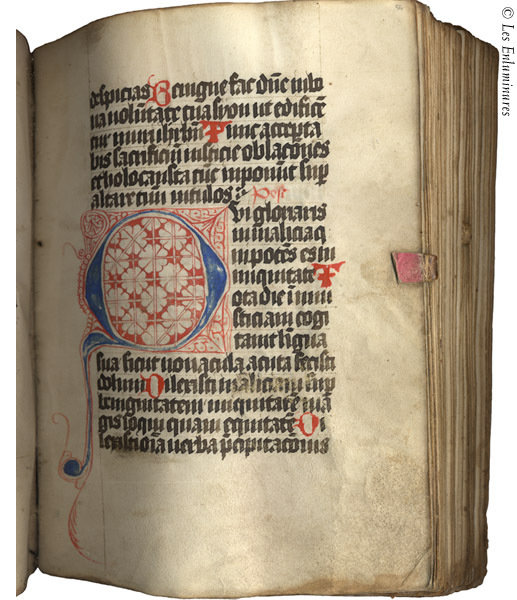 despicias Benigne fac dñe in bo
na volūtate tua syon ut edificēt
tur muri ihrlm̄ Tunc accepta
bis sacrificiū iusticie oblacōnes
et holocausta tūc inponūt sup̄
altare tuū vitulos Post
Qui gloriaris
in malicia q
in potēs es in
iniquitate T
ota die īniu
sticiam cogi
tavit līgua
tua sicut novacula acuta fecisti
dolum Dilexisti maliciam sup̄
benignitatem iniquitatē ma
gis loqui quam equitatē Di
lexisti oīa verba p̄cipitacōnis
© Les Enluminures